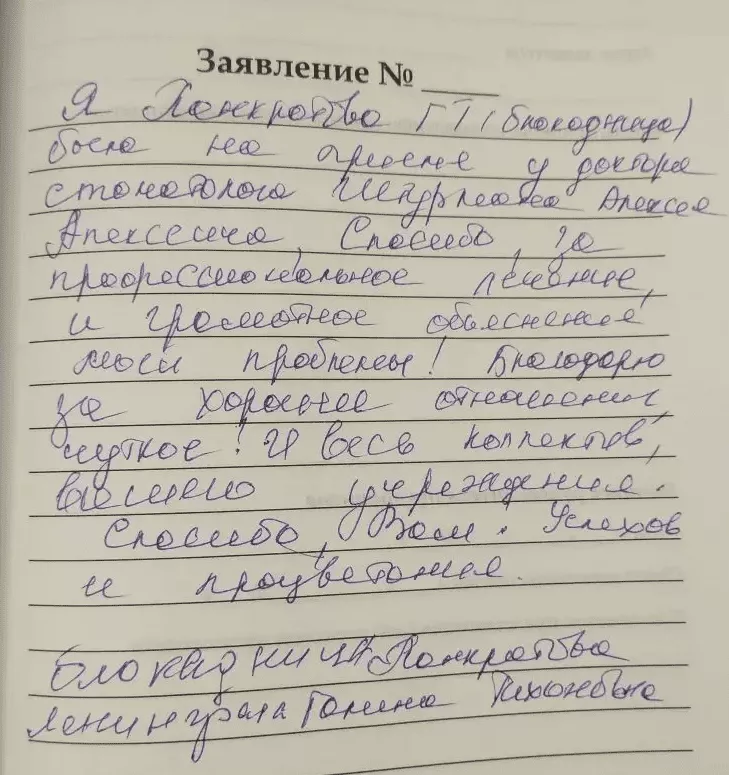 Заявление № ____
Я Панкратова Г Т (блокадница)
была на приеме у доктора
стоматолога Алексея
Алексеича, Спасибо, за
профессиональное лечение,
и грамотное объяснение
моей проблемы! Благодарю
за хорошее отношение,
чуткое! И весь коллектив,
вашего учреждения.
Спасибо, Вам. Успехов
и процветания.
блокадница Панкратова
Ленинграда Галина Тихоновна